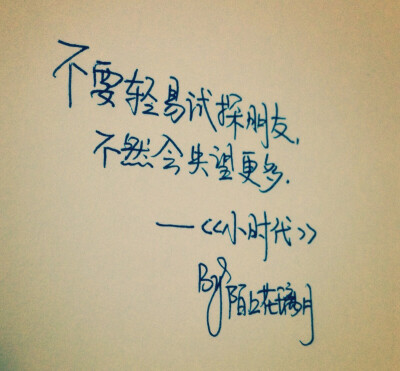 不要轻易试探朋友,
不然会失望更多.
—《小时代》
By 陌上花璃月